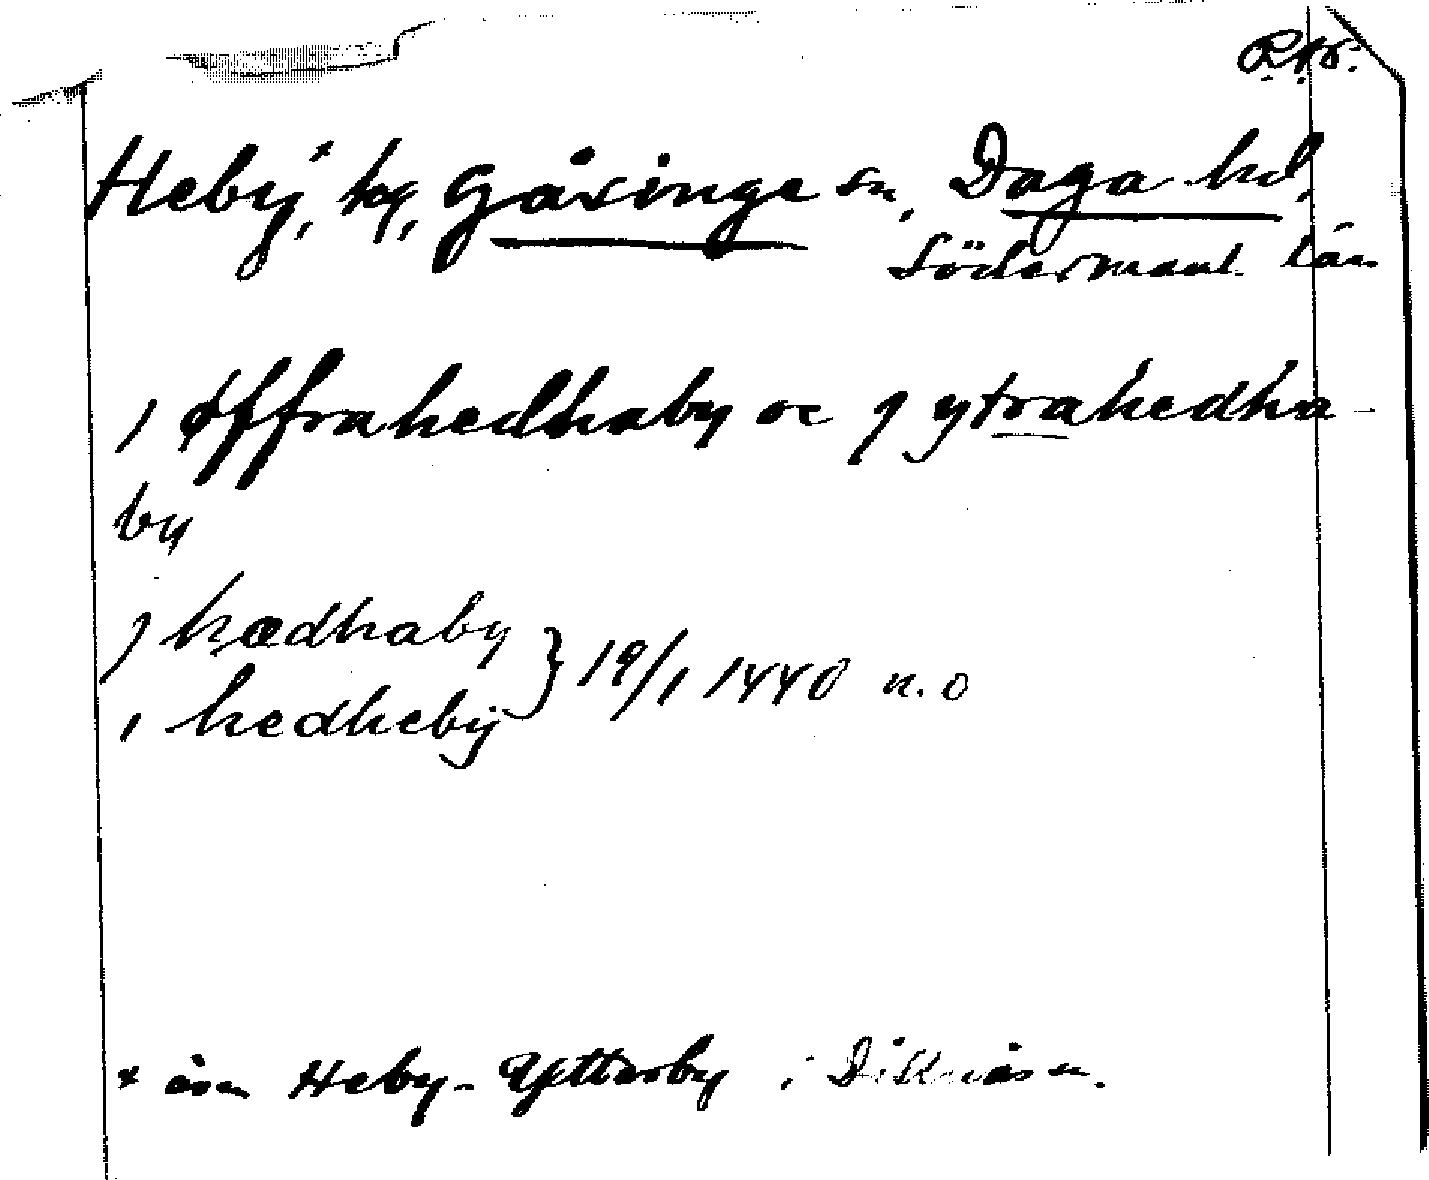 R.A.
Heby,* hg, Gåsinge sn, Daga hd,
Södermanl. län
i øffrahedhaby oc j ytrahedha-
by
j hædhaby
i hedheby } 19/1 1440 n. o
* äv. Heby-Ytterby i Dillnäs sn.